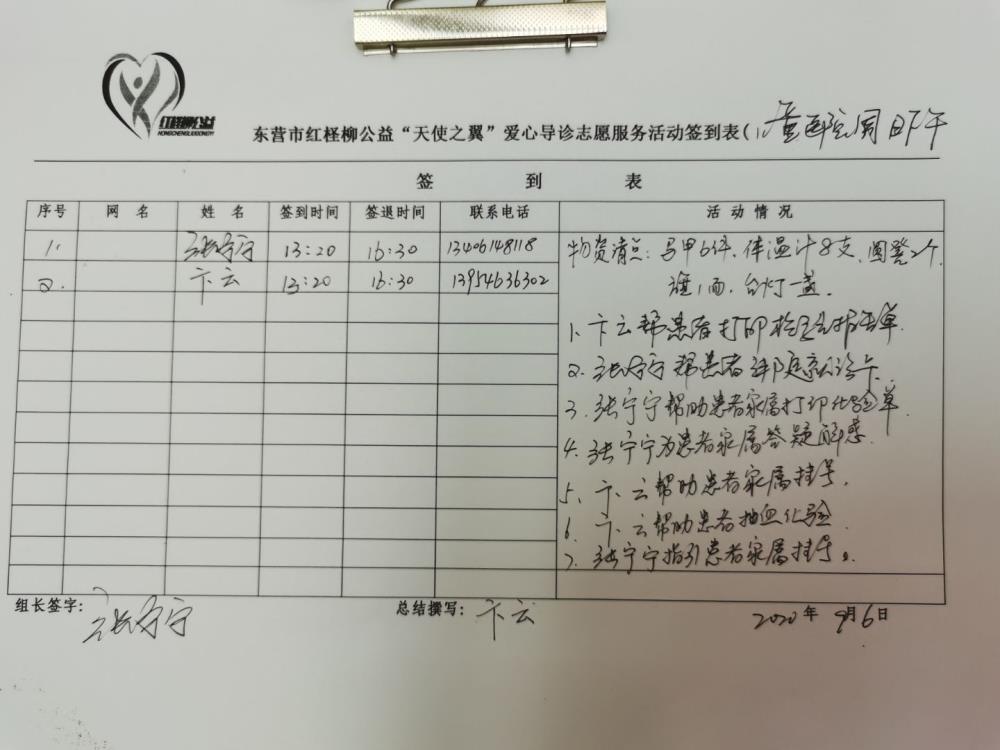 红柽柳公益
HONGCHENGLIUGONGYI
东营市红柽柳公益“天使之翼”爱心导诊志愿服务活动签到表(儿童医院周日下午
签 到 表
序号 网名 姓名 签到时间 签退时间 联系电话 活动情况
1. 张宁宁 13:20 16:30 13406148118 物资清点:马甲6件、体温计8支、圆凳2个
2. 卞云 13:20 16:30 13954636302 旗1面,台灯一盏.
1、卞云帮患者打印检查报告单.
2、张宁宁帮患者 就诊卡.
3、张宁宁帮助患者家属打印化验单.
4、张宁宁为患者家属答疑解惑.
5、卞云帮助患者家属挂号.
6、卞云帮助患者抽血化验.
7、张宁宁指引患者家属挂号。
组长签字: 张宁宁 总结撰写: 卞云 2020年9月6日